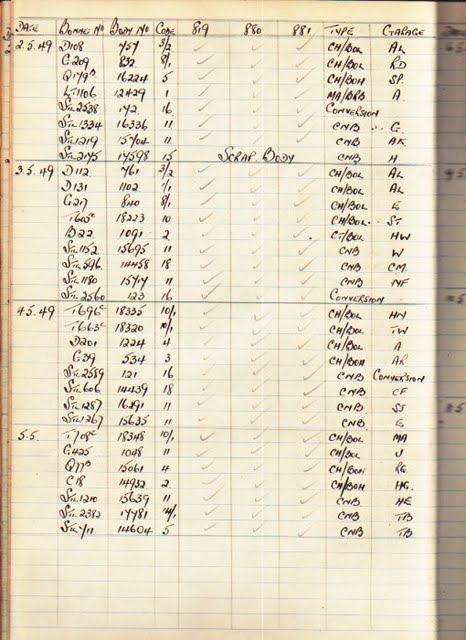 DATE BONNET NO BODY NO CODE 819 880 881 TYPE GARAGE
2.5.49 D108 757 3/2 ✓ ✓ ✓ CH/BOL AL
G209 832 8/1 ✓ ✓ ✓ CH/BOL RD
Q179B 16224 5 ✓ ✓ ✓ CH/BOH SP
LT1106 12429 1 ✓ ✓ ✓ MA/DRB A
STL2538 172 16 ✓ ✓ ✓ CONVERSION
STL1334 16336 11 ✓ ✓ ✓ CNB G
STL1219 15704 11 ✓ ✓ ✓ CNB AK
STL2175 17598 15 SCRAP BODY CNB H
3.5.49 D112 761 3/2 ✓ ✓ ✓ CH/BOL AL
D131 1102 1/1 ✓ ✓ ✓ CH/BOL AL
G217 840 8/1 ✓ ✓ ✓ CH/BOL E
T605C 18223 10 ✓ ✓ ✓ CH/BOL ST
B22 1091 2 ✓ ✓ ✓ CT/BOL HW
STL1152 15695 11 ✓ ✓ ✓ CNB W
STL596 14458 18 ✓ ✓ ✓ CNB CM
STL1180 15717 11 ✓ ✓ ✓ CNB NF
STL2560 123 16 ✓ ✓ ✓ CONVERSION
4.5.49 T696C 18335 10/1 ✓ ✓ ✓ CH/BOL HN
T663C 18320 10/1 ✓ ✓ ✓ CH/BOL TW
D201 1224 4 ✓ ✓ ✓ CH/BOL A
G39 534 3 ✓ ✓ ✓ CH/BOH AR
STL2589 121 16 ✓ ✓ ✓ CNB CONVERSION
STL606 14439 18 ✓ ✓ ✓ CNB CF
STL1287 16291 11 ✓ ✓ ✓ CNB SJ
STL1267 15635 11 ✓ ✓ ✓ CNB E
5.5. T708C 18348 10/1 ✓ ✓ ✓ CH/BOL MA
G425 1048 11 ✓ ✓ ✓ CH/BOL U
Q77B 15061 4 ✓ ✓ ✓ CH/BOH RG
C18 14932 2 ✓ ✓ ✓ CH/BOH HG
STL1210 15639 11 ✓ ✓ ✓ CNB HE
STL2382 17781 14/1 ✓ ✓ ✓ CNB TB
STL711 14604 5 ✓ ✓ ✓ CNB TB